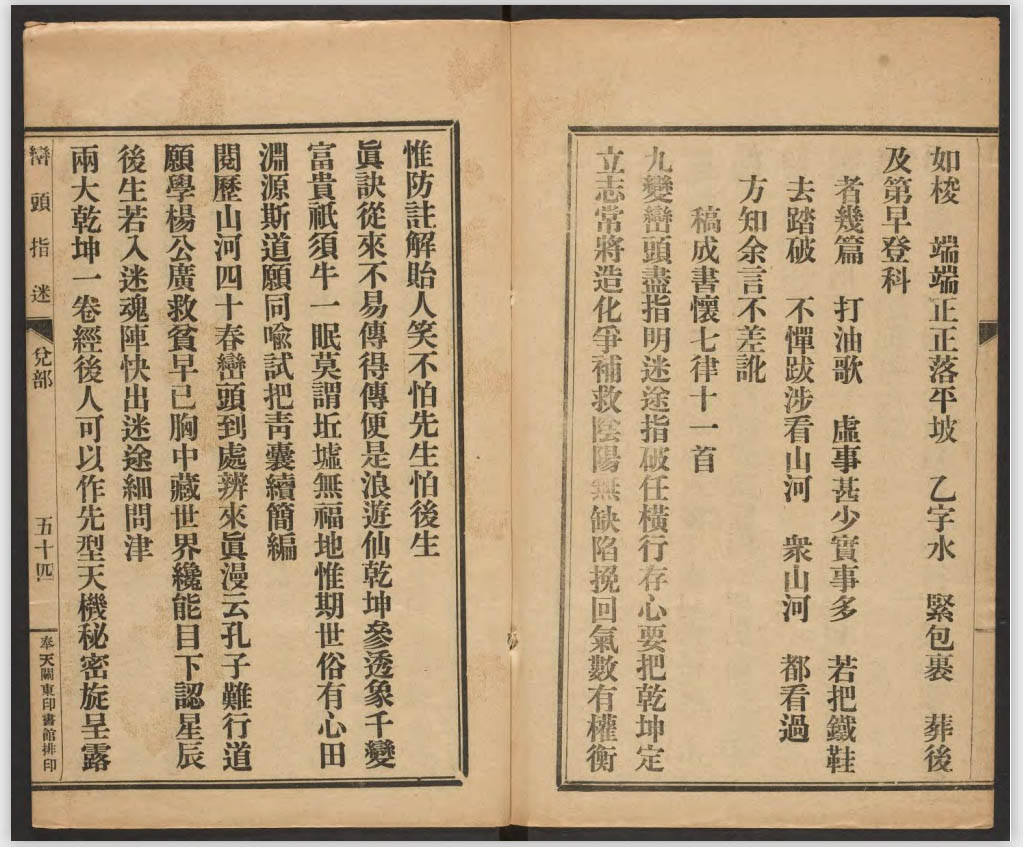 如梭　端端正正落平坡　乙字水　緊包裹　葬後
及第早登科
者幾篇　打油歌　虛事甚少實事多　若把鐵鞋
去踏破　不憚跋涉看山河　衆山河　都看過
方知余言不差訛
稿成書懷七律十一首
九變巒頭盡指明迷途指破任橫行存心要把乾坤定
立志常將造化爭補救陰陽無缺陷挽回氣數有權衡
惟防註解貽人笑不怕先生怕後生
眞訣從來不易傳得傳便是浪遊仙乾坤參透象千變
富貴祇須牛一眠莫謂坵墟無福地惟期世俗有心田
淵源斯道願同喩試把靑囊續簡編
閱歷山河四十春巒頭到處辨來眞漫云孔子難行道
願學楊公廣救貧早已胸中藏世界纔能目下認星辰
後生若入迷魂陣快出迷途細問津
兩大乾坤一卷經後人可以作先型天機秘密旋呈露
巒頭指迷
兌部
五十四
奉天關東印書館排印